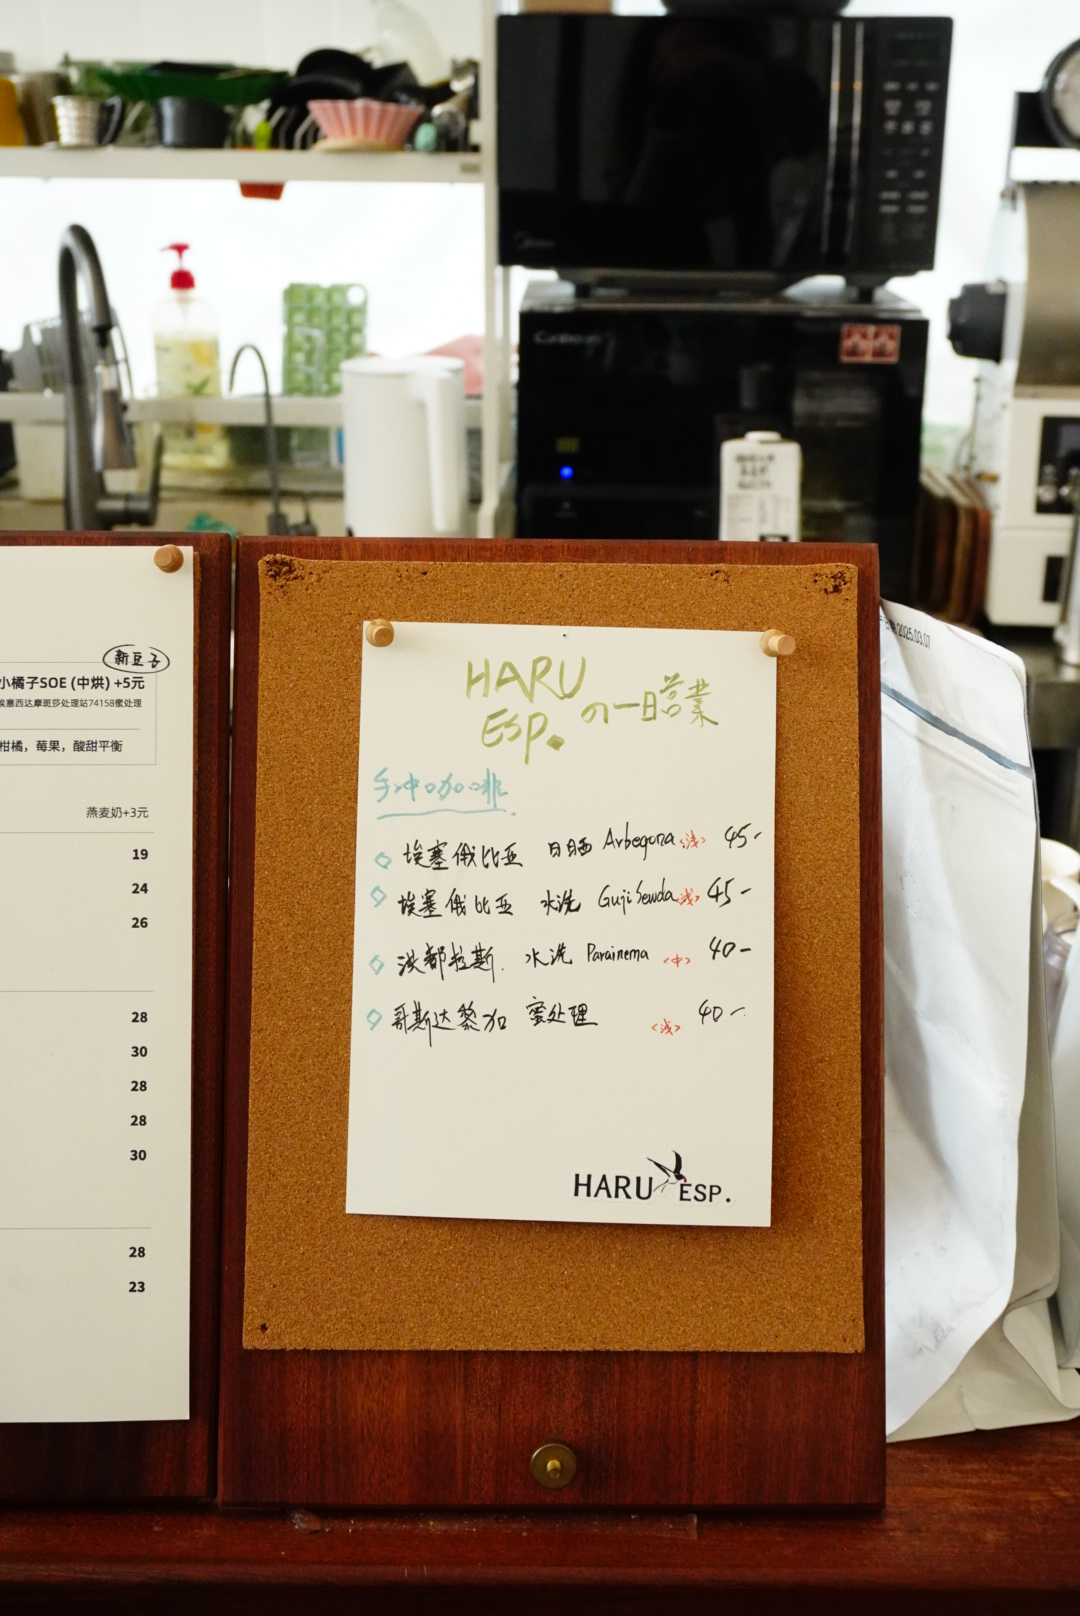 新豆子
小橘子SOE (中烘) +5元
埃塞西达摩斑莎处理站74158蜜处理
柑橘，莓果，酸甜平衡
燕麦奶+3元
19
24
26
28
30
28
28
30
28
23
HARU ESP. の一日営業
手冲咖啡
埃塞俄比亚 日晒 Arbegona <浅> 45-
埃塞俄比亚 水洗 Guji Sewda <浅> 45-
洪都拉斯. 水洗 Parainema <中> 40-
哥斯达黎加 蜜处理 <浅> 40-
HARU ESP.
Midea
2025.03.07